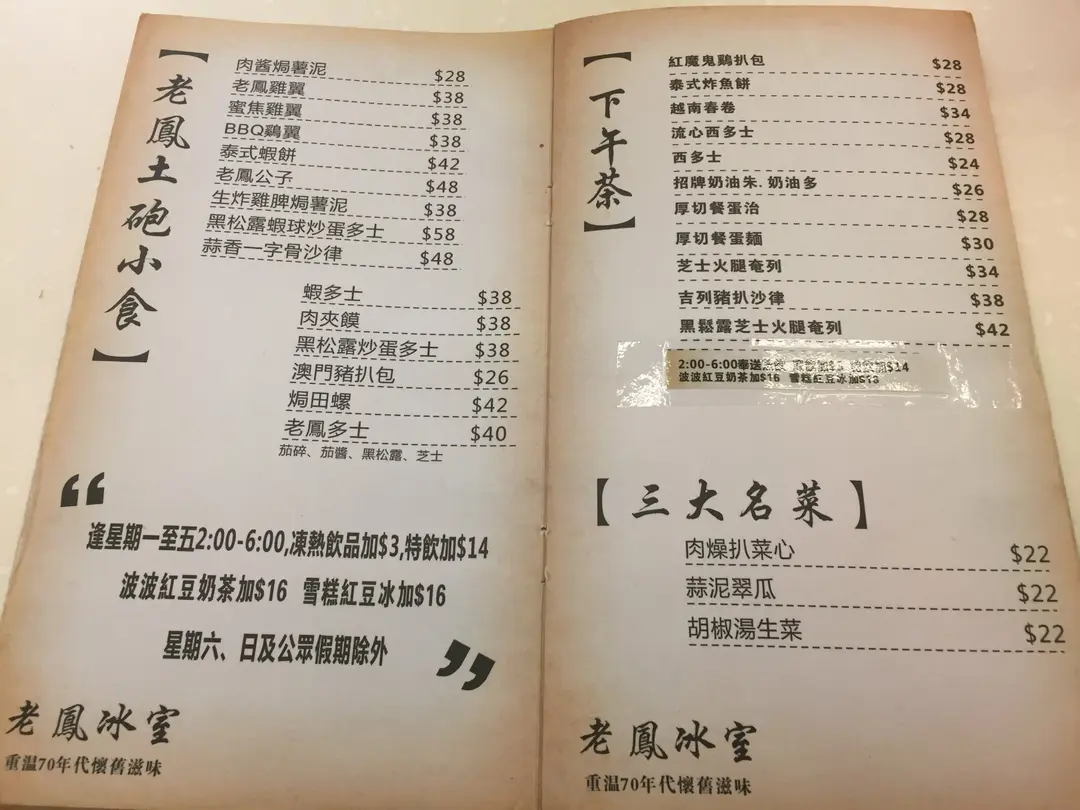 【老鳳土砲小食】
肉醬焗薯泥 $28
老鳳雞翼 $38
蜜焦雞翼 $38
BBQ鷄翼 $38
泰式蝦餅 $42
老鳳公子 $48
生炸雞脾焗薯泥 $38
黑松露蝦球炒蛋多士 $58
蒜香一字骨沙律 $48
蝦多士 $38
肉夾饃 $38
黑松露炒蛋多士 $38
澳門豬扒包 $26
焗田螺 $42
老鳳多士 $40
茄碎、茄醬、黑松露、芝士
“
逢星期一至五2:00-6:00,凍熱飲品加$3,特飲加$14
波波紅豆奶茶加$16 雪糕紅豆冰加$16
星期六、日及公眾假期除外
”
老鳳冰室
重温70年代懷舊滋味
【下午茶】
紅魔鬼鷄扒包 $28
泰式炸魚餅 $28
越南春卷 $34
流心西多士 $28
西多士 $24
招牌奶油朱.奶油多 $26
厚切餐蛋治 $28
厚切餐蛋麵 $30
芝士火腿奄列 $34
吉列豬扒沙律 $38
黑鬆露芝士火腿奄列 $42
2:00-6:00奉送 $14
波波紅豆奶茶加$16 雪糕紅豆冰加
【三大名菜】
肉燥扒菜心 $22
蒜泥翠瓜 $22
胡椒湯生菜 $22
老鳳冰室
重温70年代懷舊滋味